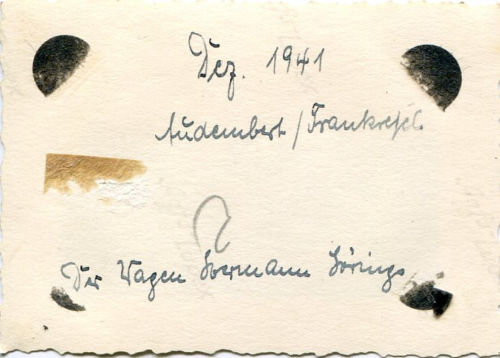 Dez. 1941
Audembert / Frankreich
Der Wagen Hermann Görings